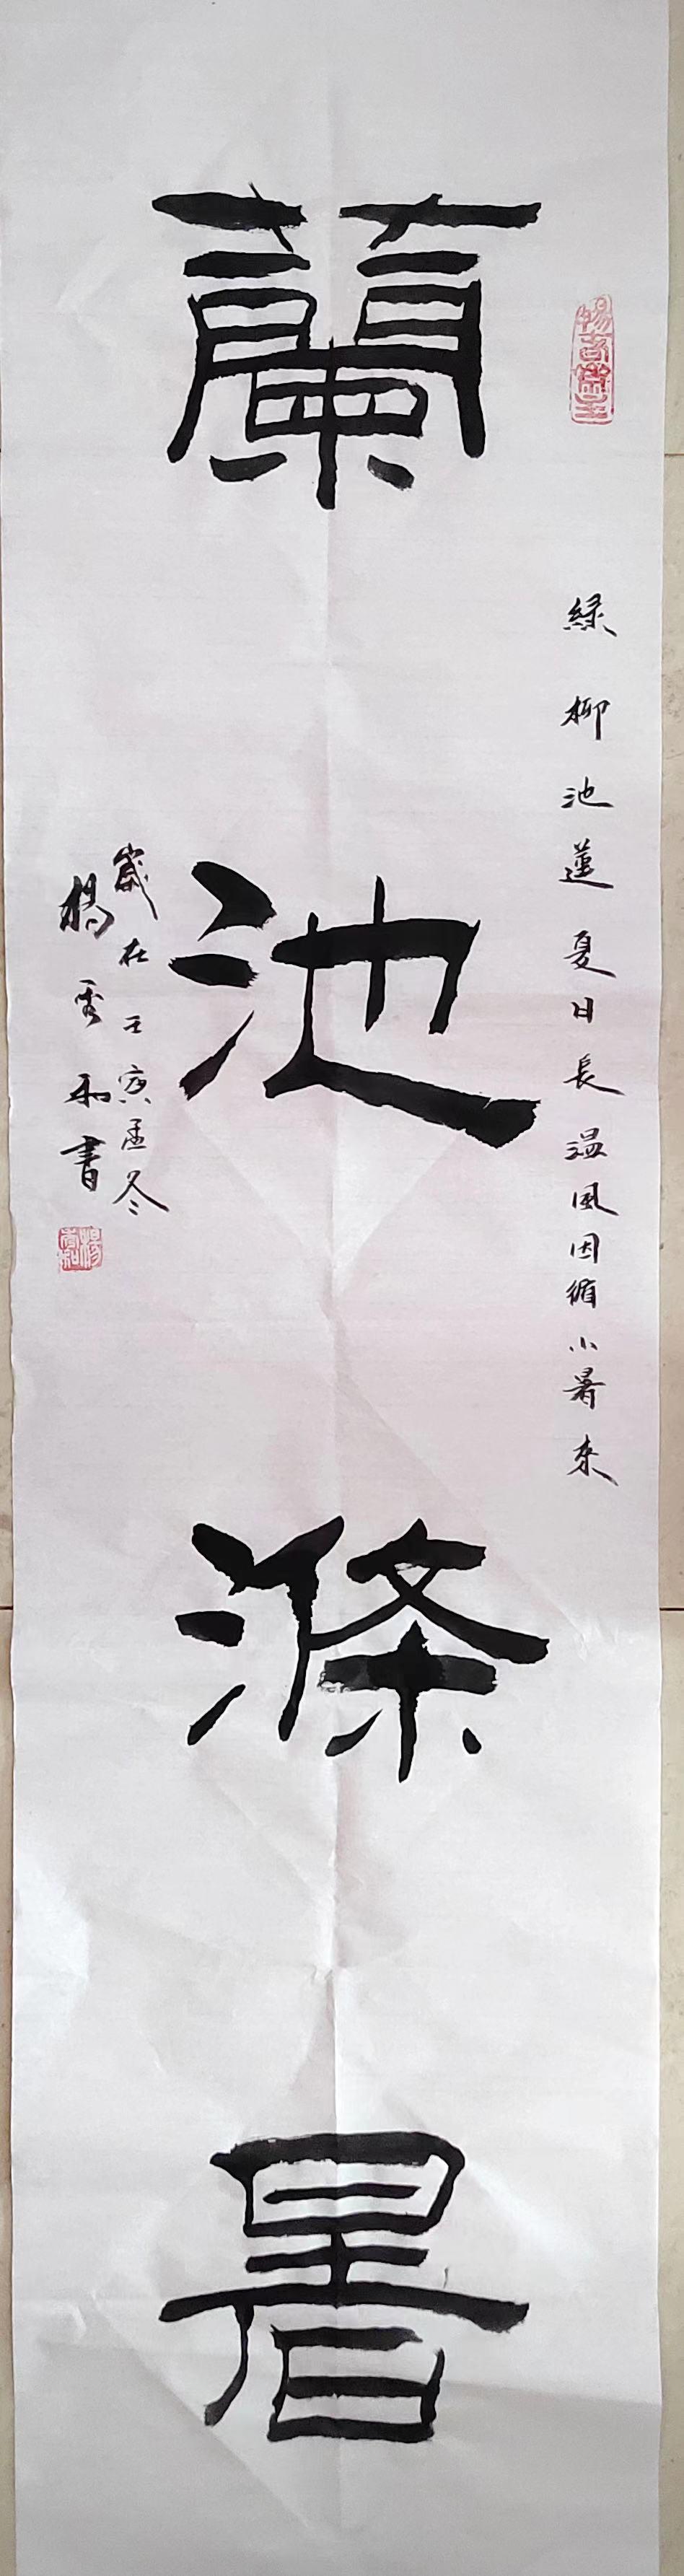 蘭池滌暑
綠柳池蓮夏日長溫風因循小暑來
歲在壬寅孟冬
楊秀和書